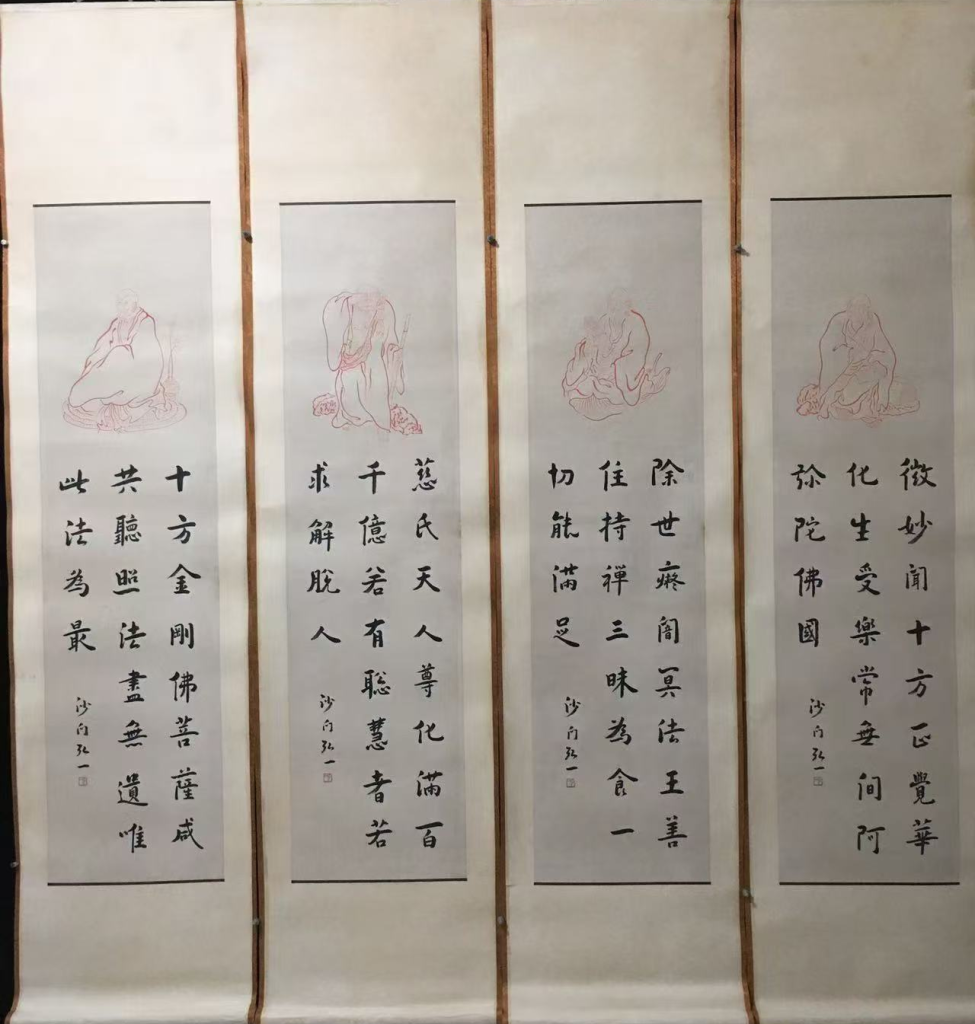 微妙聞十方正覺華
化生受樂常無间阿
弥陀佛國
沙门弘一
除世癡闇冥法王善
住持禅三昧為食一
切能滿足
沙门弘一
慈氏天人尊化滿百
千億若有聡慧者若
求解脫人
沙门弘一
十方金剛佛菩薩咸
共聽照法盡無遺唯
此法為最
沙门弘一